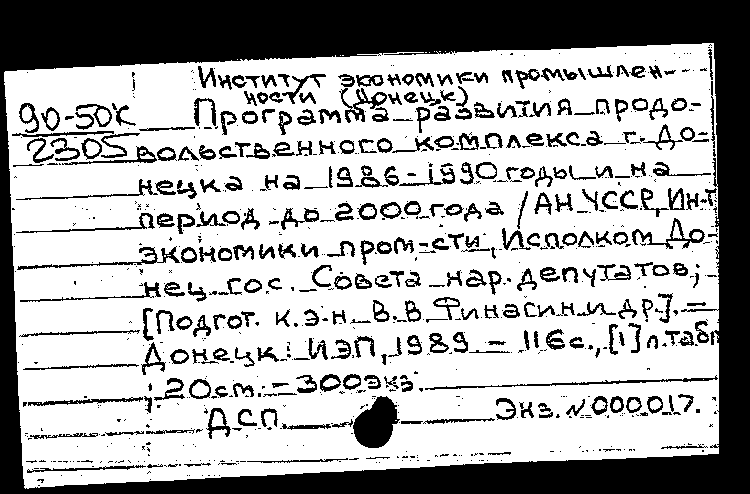 Институт экономики промышлен-
ности (Донецк)
90-50К Программа развития продо-
2305 вольственного комплекса г. До-
нецка на 1986-1990 годы и на
период до 2000 года / АН УССР, Ин-т
экономики пром-сти, Исполком До-
нец. гос. Совета нар. депутатов;
[Подгот. к.э.н. В.В. Финагин и др.]. –
Донецк: ИЭП, 1989. – 116 с., [1] л. табл
; 20 см. – 300 экз.
ДСП. Экз. №000017.